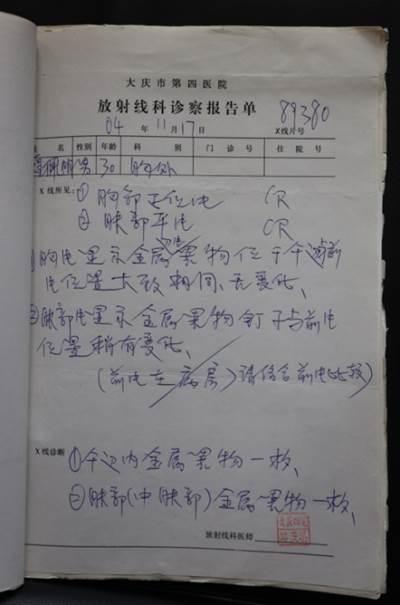 大庆市第四医院
放射线科诊察报告单
04年11月17日 X线片号 89380
姓名 性别 年龄 科别 门诊号 住院号
男 30 胸外
X线所见: ①胸部正位片 CR
②腹部平片 CR
①胸片显示金属异物位于
片位置大致相同、无变化、
②腹部片显示金属异物钉子与前片
位置稍有变化、
(前片在病房)请结合前片比较)
X线诊断 ①心内金属异物一枚、
②腹部(中腹部)金属异物一枚、
放射线科医师